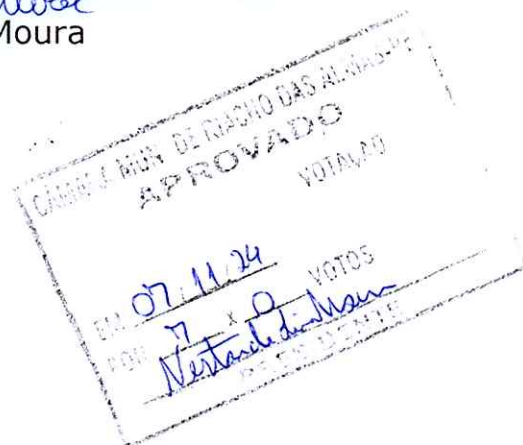 Moura
CÂMARA MUN. DE RIACHO DAS ALMAS-PE
APROVADO
VOTAÇÃO
EM 07/11/24
POR 7 x 0 VOTOS
PRESIDENTE